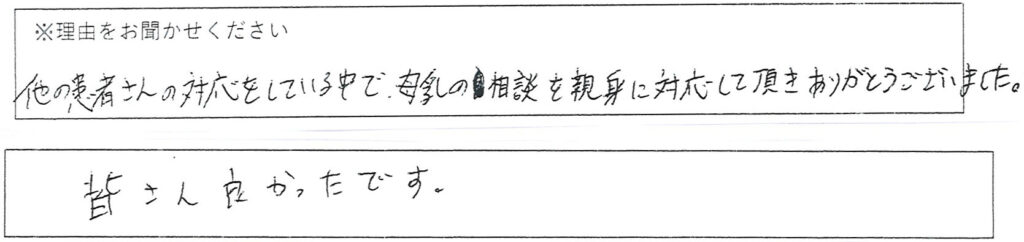 ※理由をお聞かせください
他の患者さんの対応をしている中で、母乳の相談を親身に対応して頂きありがとうございました。
皆さん良かったです。